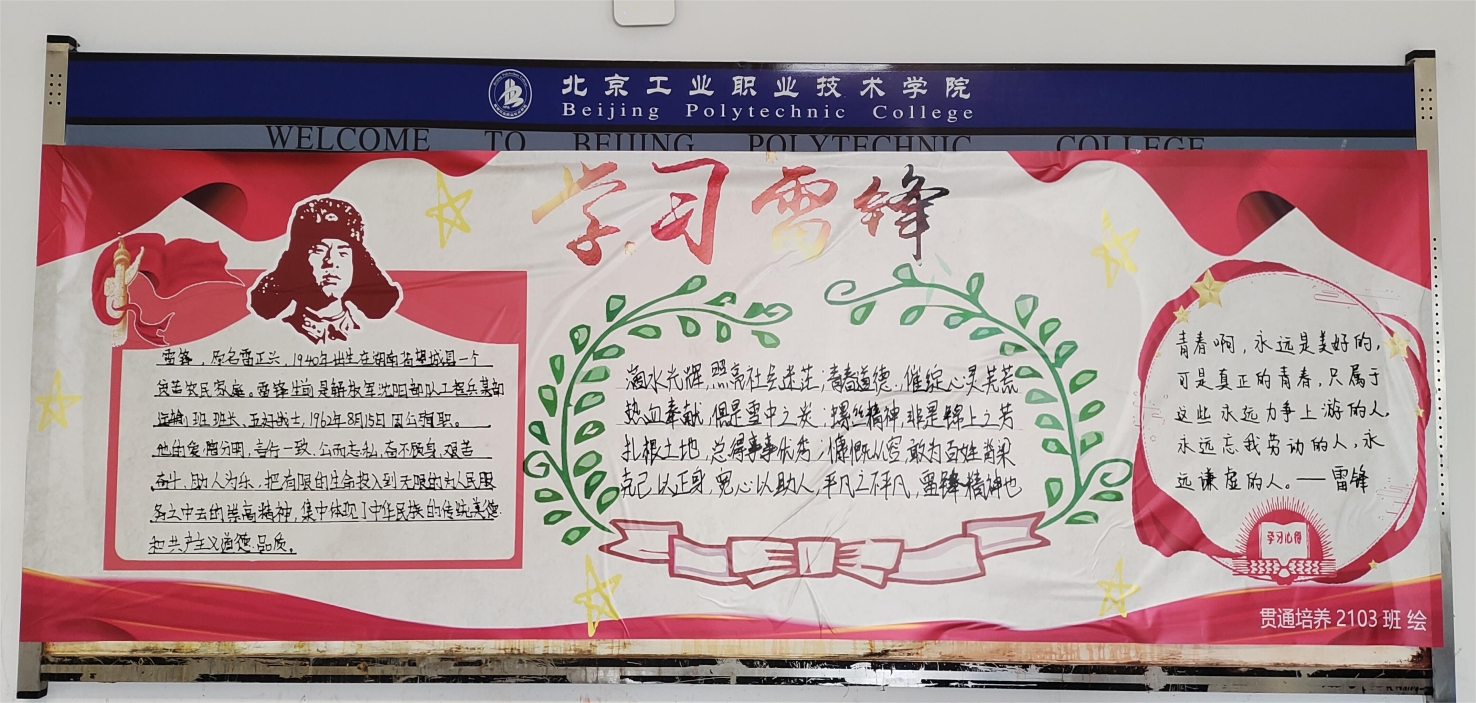 北京工业职业技术学院
Beijing Polytechnic College
WELCOME TO BEIJING POLYTECHNIC COLLEGE
学习雷锋
雷锋，原名雷正兴，1940年出生在湖南省望城县一个
贫苦农民家庭。雷锋生前是解放军沈阳部队工程兵某部
运输班班长、五好战士，1962年8月15日因公殉职。
他的爱憎分明，言行一致，公而忘私，奋不顾身，艰苦
奋斗，助人为乐，把有限的生命投入到无限的为人民服
务之中去的崇高精神，集中体现了中华民族的传统美德
和共产主义道德品质。
滴水光辉，照亮社会迷茫；青春道德，催绽心灵芙蓉
热血奉献，俱是雪中之炭；螺丝精神，非是锦上之花
扎根土地，总得事事优秀；慷慨从容，敢为百姓脊梁
克己以正身，宽心以助人，平凡之不平凡，雷锋精神也
青春啊，永远是美好的，
可是真正的青春，只属于
这些永远力争上游的人，
永远忘我劳动的人，永
远谦虚的人。——雷锋
学习心得
贯通培养 2103 班 绘